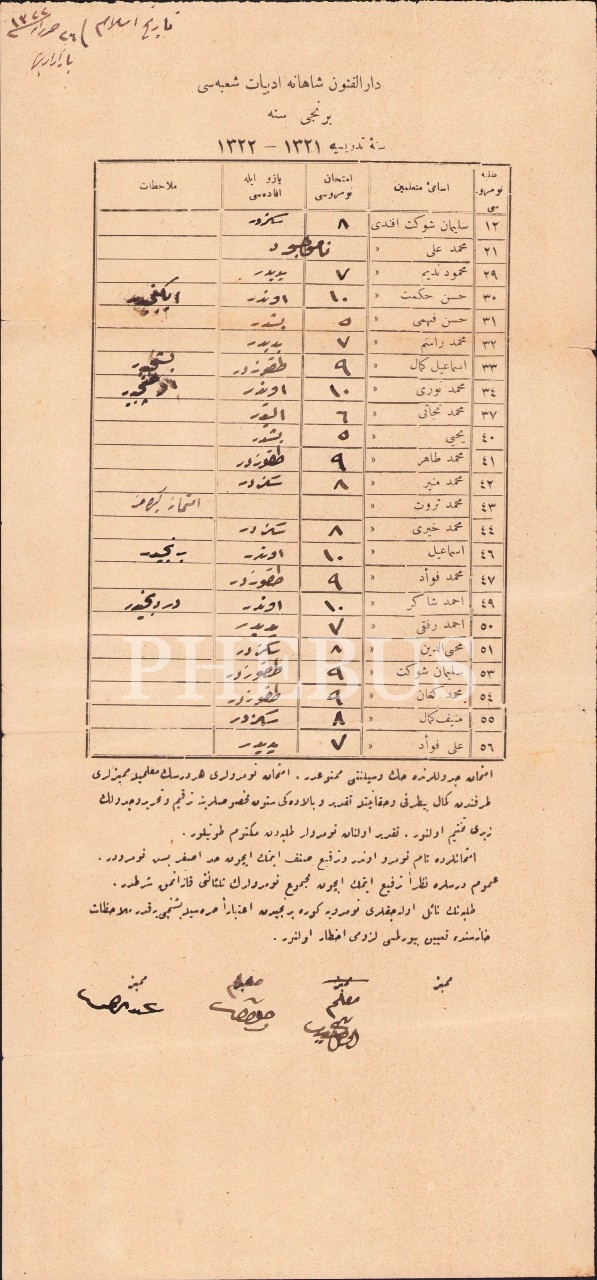 تاریخ اسلام / ٢٦ حزیران ١٣٢٢
بازارایرتسی
دار الفنون شاهانه ادبیات شعبه‌سی
برنجی سنه
سنهٔ تدریسیه ١٣٢١ – ١٣٢٢
طلبه نومرو سی اسامیٔ متعلمین امتحان نومروسی یازو ایله افاده‌سی ملاحظات
١٢ سلیمان شوکت افندی ٨ سکزدر
٢١ محمد علی » نامو‌جود
٢٩ محمود ندیم » ٧ یدیدر
٣٠ حسن حکمت » ١٠ اوندر ایکنجیدر
٣١ حسن فهمی » ٥ بشدر
٣٢ محمد راسم » ٧ یدیدر
٣٣ اسماعیل کمال » ٩ طقوزدر بشنجیدر
٣٤ محمد نوری » ١٠ اوندر اوچنجیدر
٣٧ محمد نجاتی » ٦ التیدر
٤٠ یحیی » ٥ بشدر
٤١ محمد طاهر » ٩ طقوزدر
٤٢ محمد منیر » ٨ سکزدر
٤٣ محمد ثروت » امتحانه کیرمامز
٤٤ محمد خیری » ٨ سکزدر
٤٦ اسماعیل » ١٠ اوندر برنجیدر
٤٧ محمد فوأد » ٩ طقوزدر
٤٩ احمد شاکر » ١٠ اوندر دردنجیدر
٥٠ احمد رفقی » ٧ یدیدر
٥١ محیی الدین » ٨ سکزدر
٥٣ سلیمان شوکت » ٩ طقوزدر
٥٤ محمد کنعان » ٩ طقوزدر
٥٥ منیف کمال » ٨ سکزدر
٥٦ علی فوأد » ٧ یدیدر
PHEBUS
امتحان جدوللرنده حك و سیلنتی ممنوعدر . امتحان نومرولری هر درسك معلمیله ممیزلری
طرفندن کمال بیطرفی و حقانیتله تقدیر و بالاده‌کی ستون مخصوصلرینه ترقیم و تحریر و جدولك
زیری تختیم اولنور . تقدیر اولنان نومرولر طلبه‌دن مکتوم طوتیلور .
امتحانلرده تام نومرو اوندر و ترفیع صنف ایتمك ایچون حد اصغر بش نومرودر .
عموم درسلره نظراً ترفیع ایتمك ایچون مجموع نومرولرك ثلثانی قازانمق شرطدر .
طلبه‌نك نائل اوله‌جقلری نومرویه کوره برنجیدن اعتباراً صره‌سیله بشنجی‌یه قدر ملاحظات
خانه‌سنده تعیین بیورلمسی لزومی اخطار اولنور .
ممیز ممیز معلم ممیز
معلم